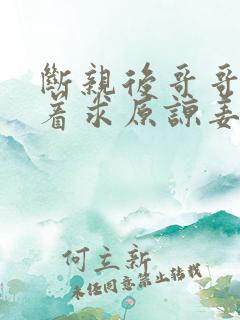 斷親後哥哥
着求原諒姜
何立新
未经同意禁止转载